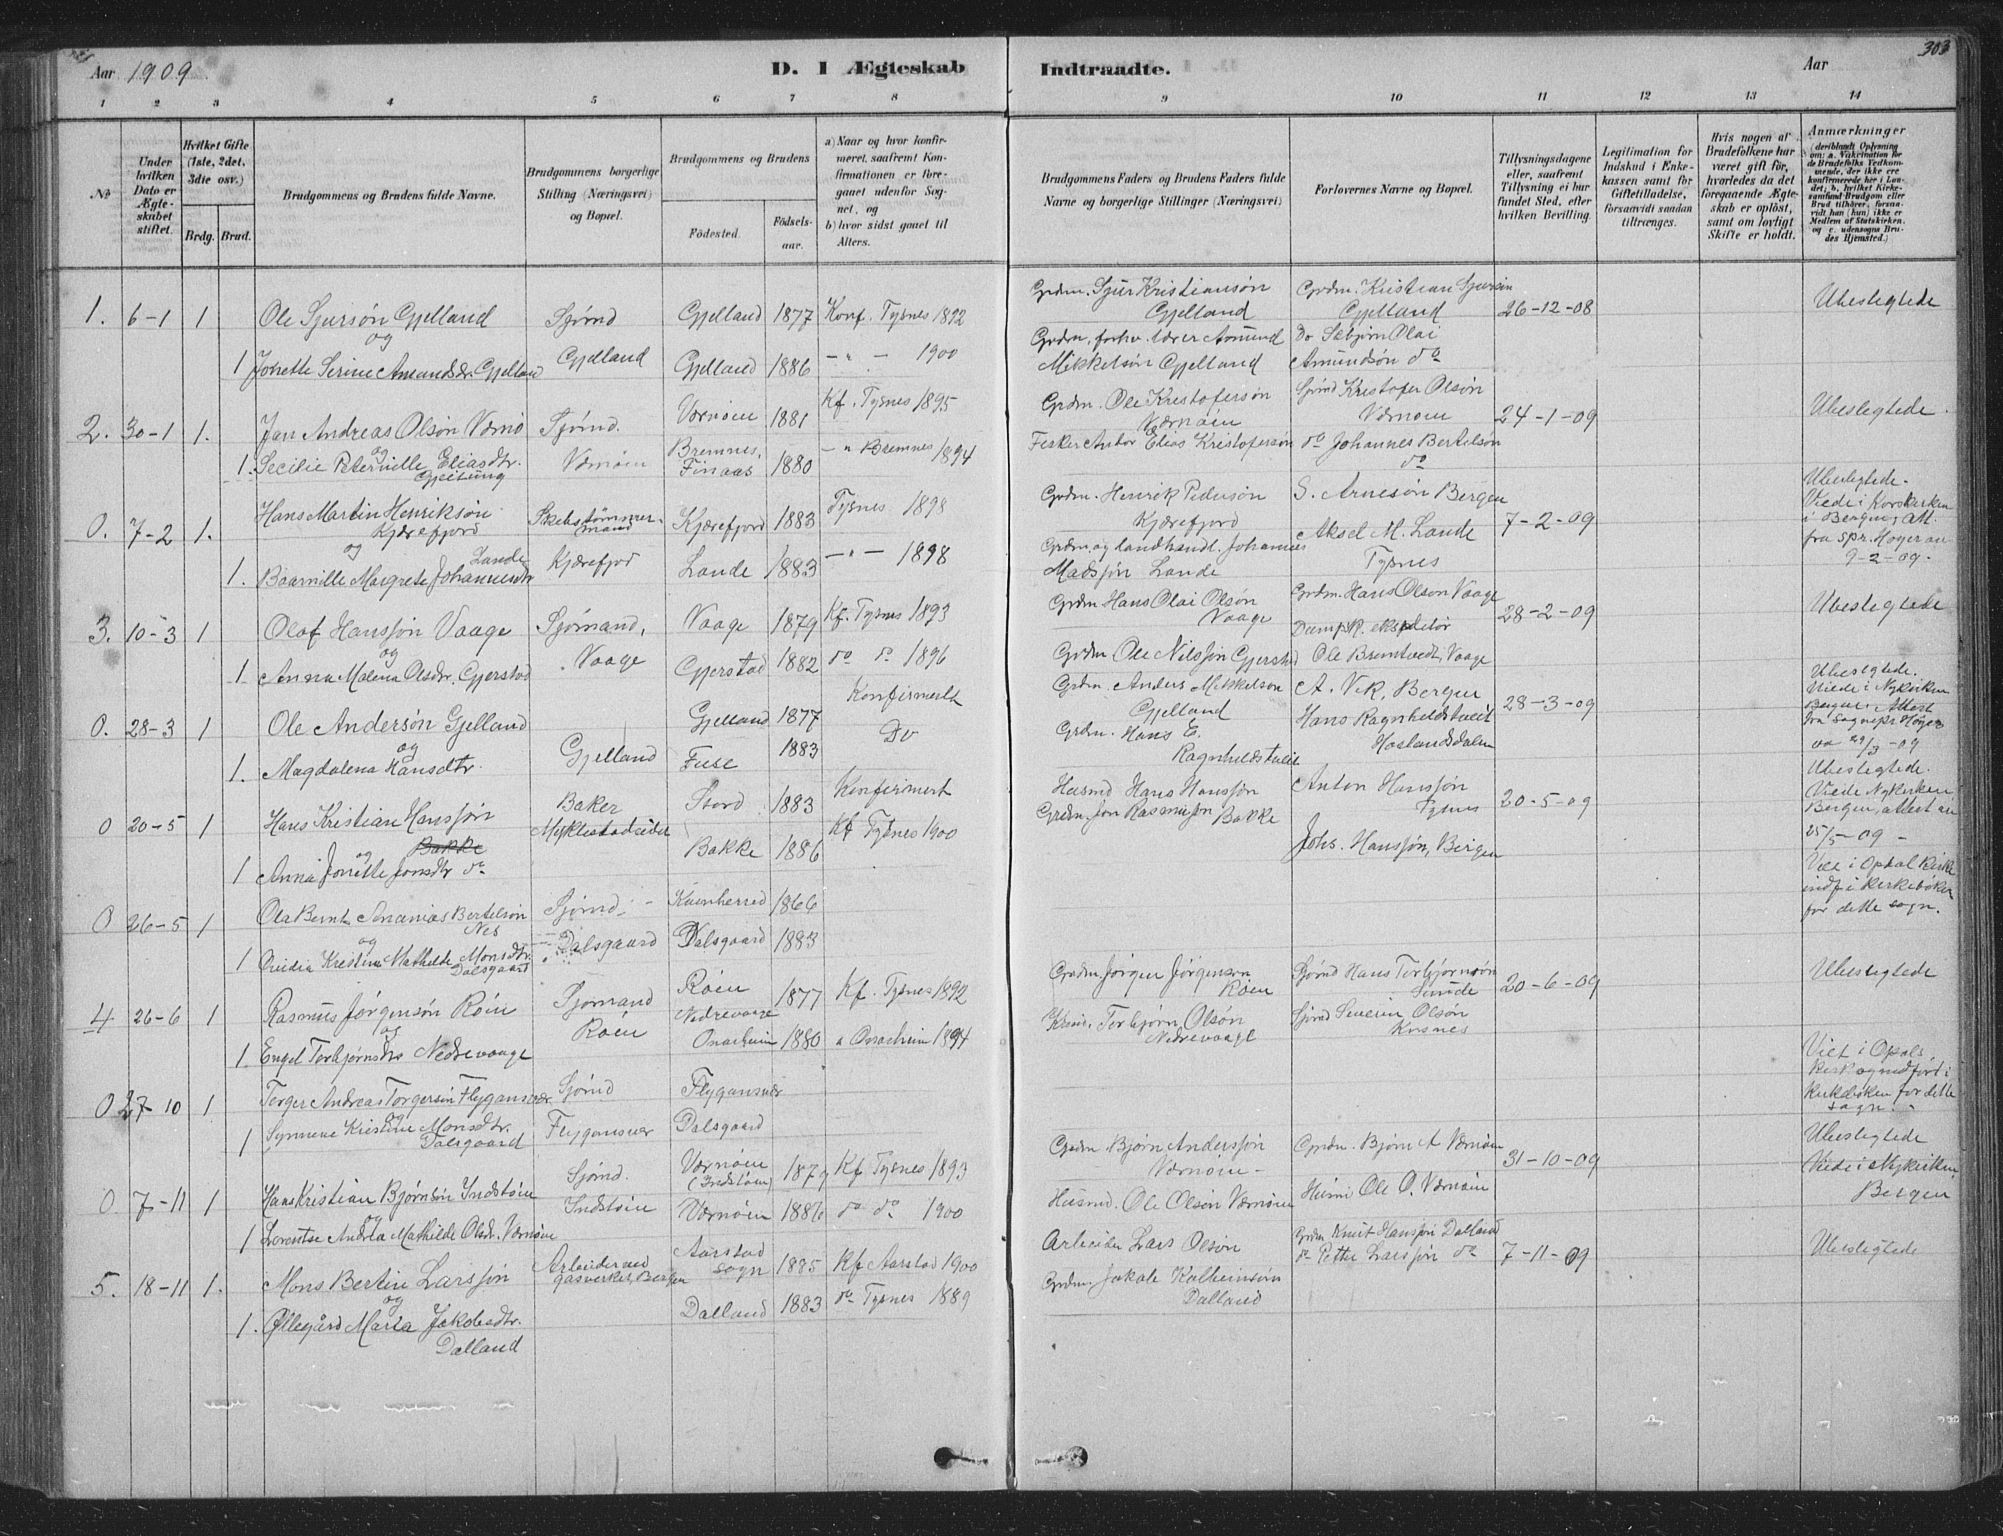 Aar 1909.
D. I Ægteskab Indtraadte.
Aar
303
1 2 3 4 5 6 7 8 9 10 11 12 13 14
No
Under hvilken Dato er Ægteskabet stiftet.
Hvilket Gifte (1ste, 2det, 3die osv.)
Brdg. Brud.
Brudgommens og Brudens fulde Navne.
Brudgommens borgerlige Stilling (Næringsvei) og Bopæl.
Brudgommens og Brudens
Födested. Födselsaar.
a) Naar og hvor konfirmeret, saafremt Konfirmationen er foregaaet udenfor Sognet, og
b) hvor sidst gaaet til Alters.
Brudgommens Faders og Brudens Faders fulde Navne og borgerlige Stillinger (Næringsvei)
Forlovernes Navne og Bopæl.
Tillysningsdagene eller, saafremt Tillysning ei har fundet Sted, efter hvilken Bevilling.
Legitimation for Indskud i Enkekassen samt for Giftetilladelse, forsaavidt saadan tiltrænges.
Hvis nogen af Brudefolkene har været gift før, hvorledes da det foregaaende Ægteskab er opløst, samt om lovligt Skifte er holdt.
Anmærkninger (deriblandt Oplysning om: a. Vakcination for de Brudefolks Vedkommende, der ikke ere konfirmerede her i Landet; b. hvilket Kirkesamfund Brudgom eller Brud tilhører, forsaavidt han (hun) ikke er Medlem af Statskirken, og c. udensogns Brudes Hjemsted.)
1. 6-1 1 Ole Sjursøn Gjelland Sjømd Gjelland 1877 Konf. Tysnes 1892 Grdm. Sjur Kristiansøn Gjelland Grdm. Kristian Sjursøn Gjelland 26-12-08 Ubeslegtede
og
1 Jorette Serine Amundsdr. Gjelland Gjelland Gjelland 1886 — " — 1900 Grdm, forhv. lærer Amund Mikkelsøn Gjelland Do Sebjørn Olai Amundsøn do
2. 30-1 1. Jan Andreas Olsøn Værnø Sjømd. Værnøen 1881 Kf. Tysnes 1895 Grdm. Ole Kristofersøn Værnøen Sjømd Kristofer Olsøn Værnøen 24-1-09 Ubeslegtede.
og
1. Secilie Peternille Eliasdtr. Gjeitung Værnøen Bremnes, Finaas 1880 — " Bremnes 1894 Fisker Anton Elias Kristofersøn do Johannes Bertelsøn do
0. 7-2 1. Hans Martin Henriksøn Kjærefjord Skibstømmermand Kjærefjord 1883 Tysnes 1898 Grdm. Henrik Pedersøn Kjærefjord S. Arnesøn Bergen 7-2-09 Ubeslegtede. Viede i Korskirken i Bergen, Att. fra spr. Høyer av 9-2-09.
og
1. Baarnille Margrete Johannesdtr Lande Kjærefjord Lande 1883 — " — 1898 Grdm. og landhandl. Johannes Madsjøn Lande Aksel M. Lande Tysnes
3. 10-3 1 Olaf Hansjøn Vaage Sjømand, Vaage 1879 Kf. Tysnes 1893 Grdm Hans Olai Olsøn Vaage Grdm. Hans Olson Vaage 28-2-09 Ubeslegtede
og
1. Anna Malena Olsdtr. Gjerstad Vaage Gjerstad 1882 do do 1896 Grdm Ole Nilsjøn Gjerstad Dampsk. ekspeditør Ole Bremtvedt, Vaage
0. 28-3 1 Ole Andersøn Gjelland Gjelland 1877 Konfirmert Grdm. Anders Mikkelsøn Gjelland A. Vik, Bergen 28-3-09 Ubeslegtede. Viede i Nykirken Bergen. Attest fra Sognepr. Høyer av 29/3-09
og
1. Magdalena Hansdtr. Gjelland Fuse 1883 Do Grdm. Hans E. Ragnhildstveit Hans Ragnhildstveit Haslandsdalen
0 20-5 1 Hans Kristian Hansjøn Bakke Baker Myklestadeidet Stord 1883 Konfirmert Husmd Hans Hansjøn Anton Hansjøn Tysnes 20-5-09 Ubeslegtede. Viede Nykirken Bergen, attest av 25/5-09 -
og
1 Anna Jorette Jonsdtr do Bakke 1886 Kf Tysnes 1900 Grdm. Jon Rasmusjøn Bakke Johs. Hansjøn, Bergen
0 26-5 1 Ola Bernt Ananias Bertelsøn Nes Sjømd. Kvinherred 1866 Viet i Opdal kirke indf i kirkebøken for dette sogn.
og
1 Ovidia Kristine Mathilde Monsdtr. Dalsgaard Dalsgaard Dalsgaard 1883
4 26-6 1 Rasmus Jørgensøn Røen Sjømand Røen 1877 Kf. Tysnes 1892 Grdm. Jørgen Jørgensen Røen Sjømd Hans Torbjørnsøn Sunde 20-6-09 Ubeslegtede
og
1 Engel Torbjørnsdtr Nedrevaage Røen Nedrevaage Onarheim 1880 " Onarheim 1894 Torbjørn Olsøn Nedrevaage Sjømd Severin Olsøn
0 27-10 1 Torger Andreas Torgersøn Flygansvær Sjømd Flygansvær Viet i Opdals kirke og indført i kirkeboken for dette sogn.
og
1 Synneve Kristine Monsdtr. Dalsgaard Flygansvær Dalsgaard
0. 7-11 1 Hans Kristian Bjørnsøn Indstøen Sjømd. Værnøen (Indstøen) 1879 Kf Tysnes 1893 Grdm. Bjørn Andersjøn Værnøen - Grdm. Bjørn A Værnøen 31-10-09 Ubeslegtede Viede i Nykirken Bergen
og
1 Lorentse Andrea Mathilde Olsdr. Værnøen Indstøen Værnøen 1886 do do 1900 Husmd. Ole Olsøn Værnøen Husm Ole O. Værnøen
5. 18-11 1. Mons Bertin Larsjøn Arbeider ved gasverket, Bergen Aarstad sogn 1885 Kf Aarstad 1900 Arbeider Lars Olsøn Grdm Knut Hansjøn Dalland 7-11-09 Ubeslegtede
og
1. Øllegård Maria Jakobsdtr. Dalland Dalland 1883 do Tysnes 1889 Grdm. Jakob Kolbeinsøn Dalland do Petter Larsjøn do